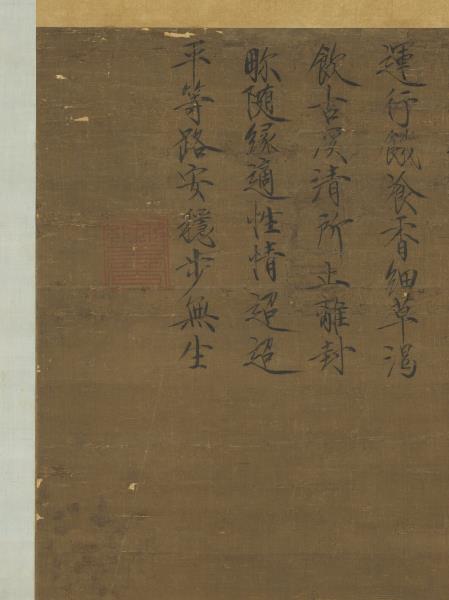 運行餓飡香細草渴
飲古溪清所止離封
畛随緣適性情迢迢
平等路安穩步無生